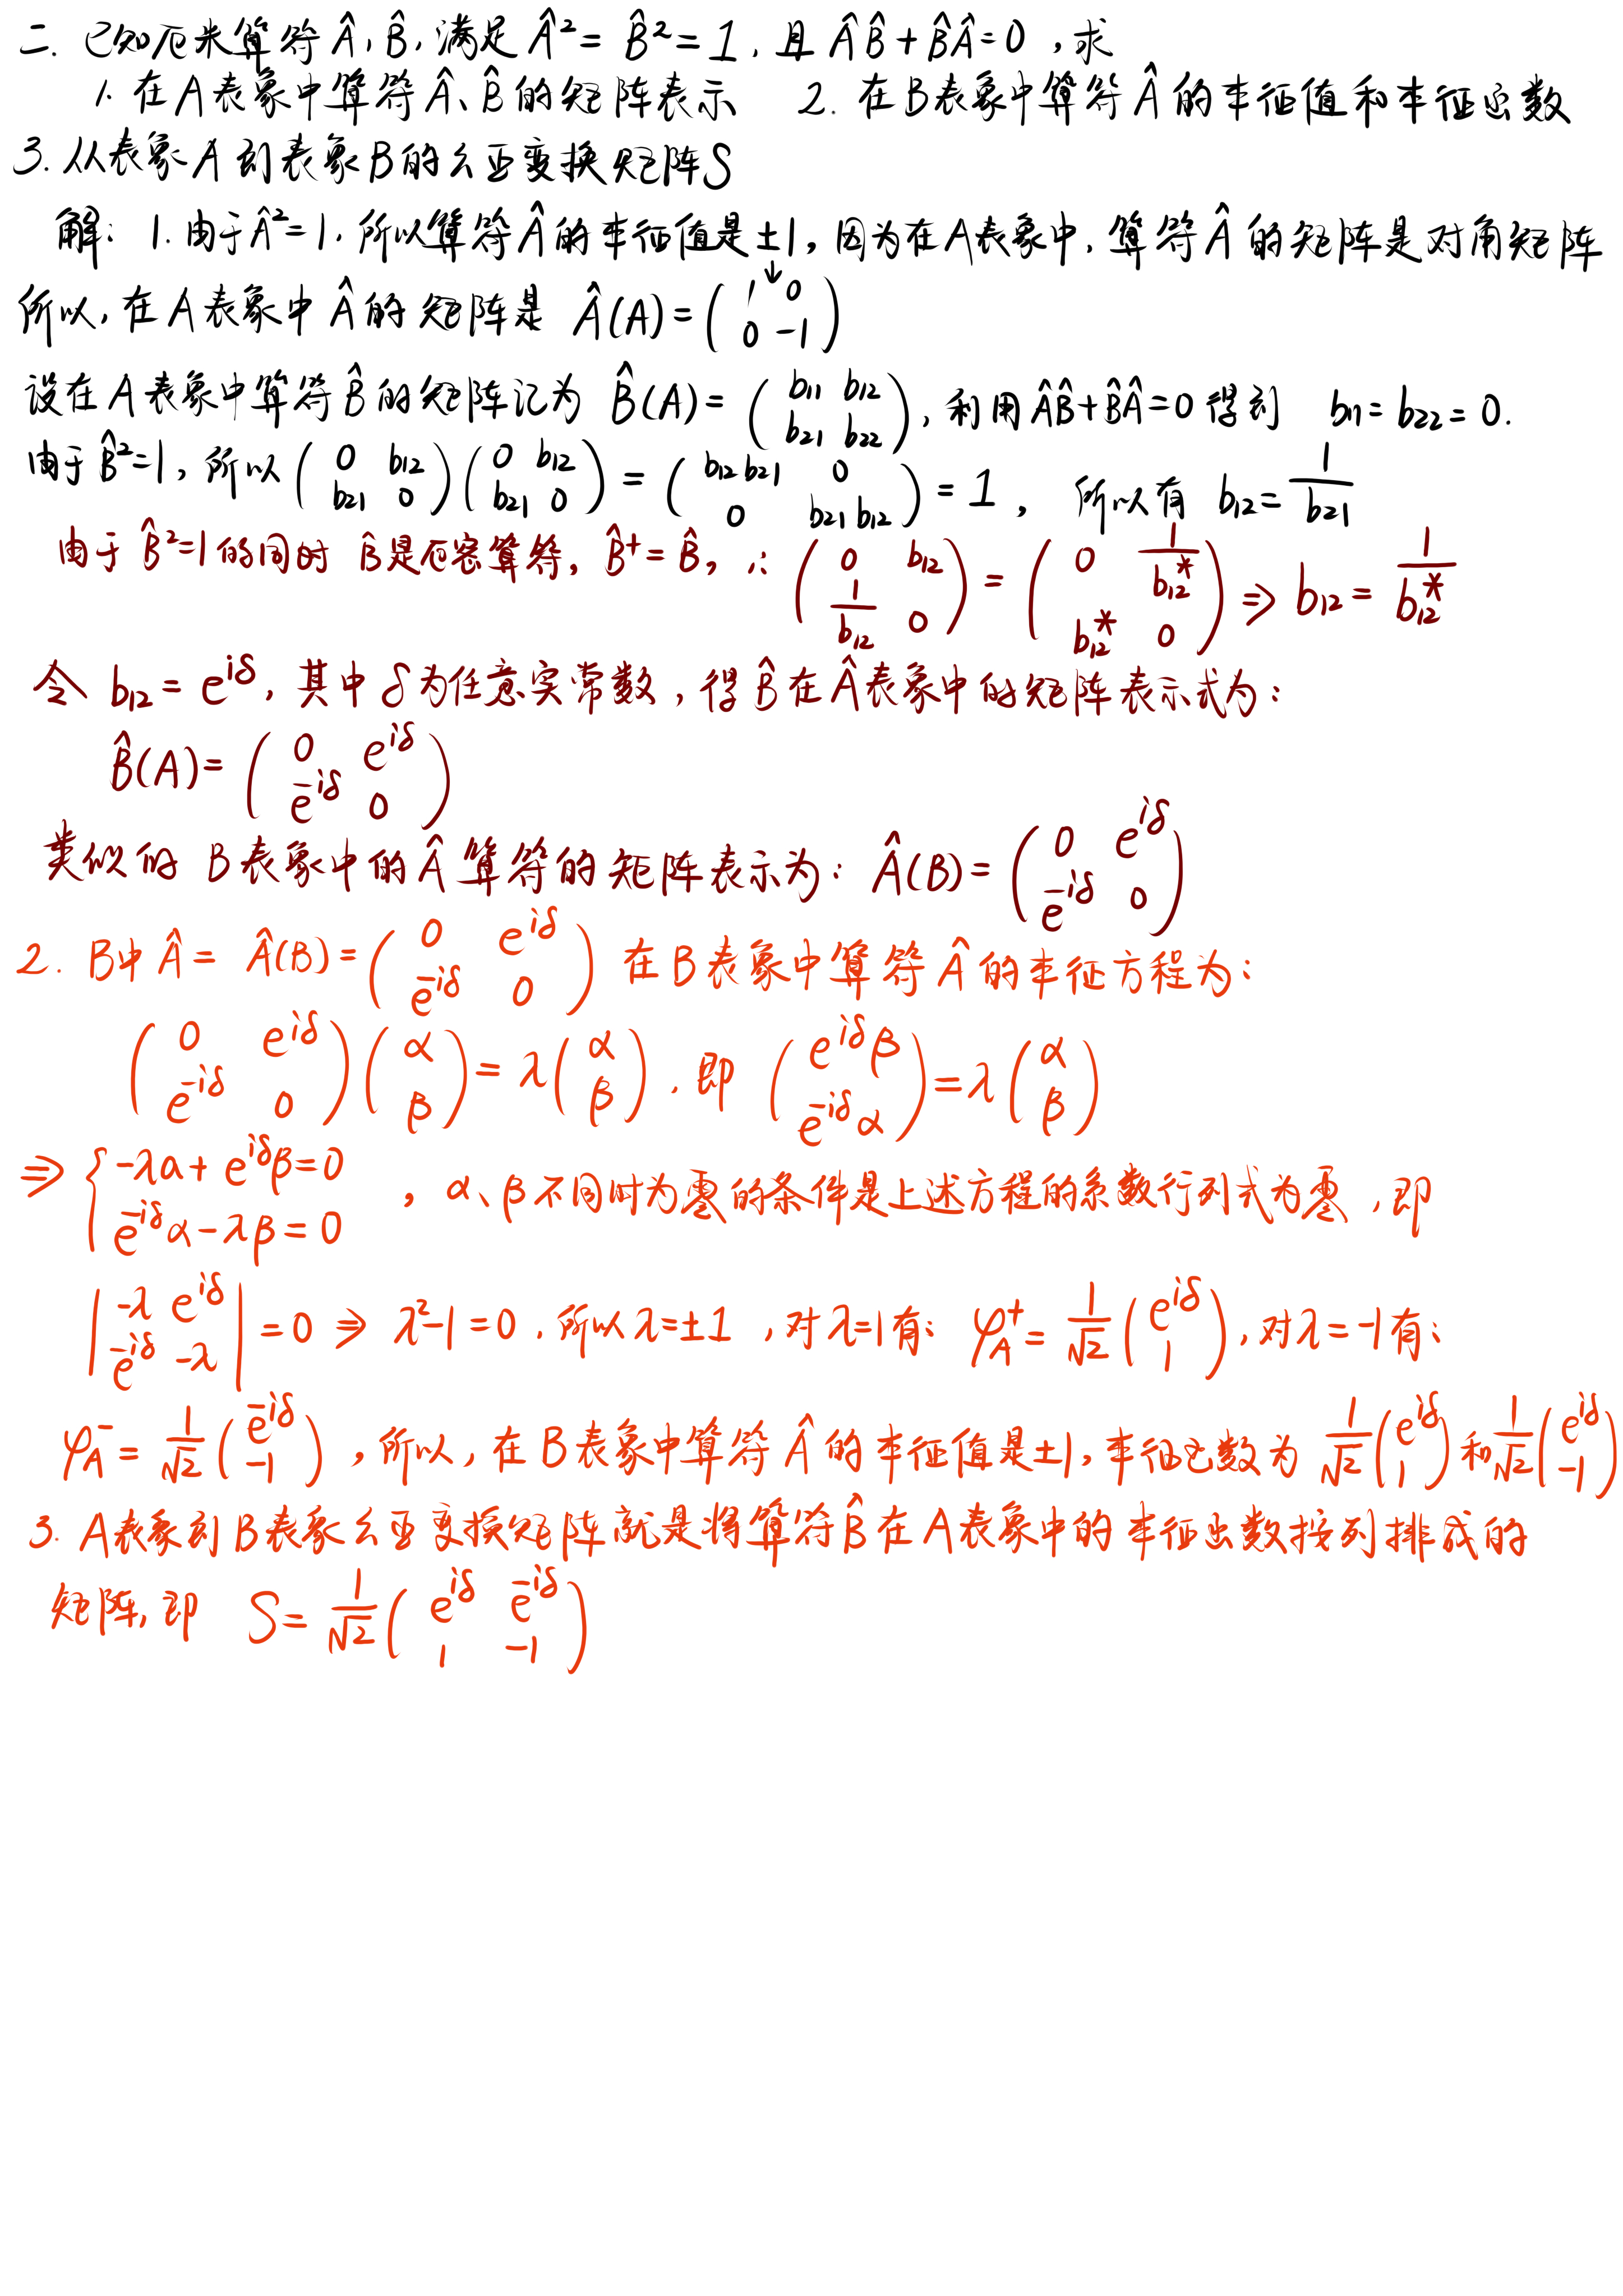 二. 已知厄米算符 Â, B̂, 满足 Â² = B̂² = 1, 且 ÂB̂ + B̂Â = 0, 求
1. 在A表象中算符Â、B̂的矩阵表示 2. 在B表象中算符Â的本征值和本征函数
3. 从表象A到表象B的幺正变换矩阵S
解: 1. 由于Â²=1, 所以算符Â的本征值是±1, 因为在A表象中, 算符Â的矩阵是对角矩阵
所以, 在A表象中Â的矩阵是 Â(A) = ( 1 0 ; 0 -1 )
设在A表象中算符B̂的矩阵记为 B̂(A) = ( b11 b12 ; b21 b22 ), 利用ÂB̂+B̂Â=0得到 b11 = b22 = 0.
由于B̂²=1, 所以 ( 0 b12 ; b21 0 ) ( 0 b12 ; b21 0 ) = ( b12b21 0 ; 0 b21b12 ) = 1, 所以有 b12 = 1/b21
由于 B̂²=1的同时 B̂是厄密算符, B̂⁺ = B̂, ∴ ( 0 b12 ; 1/b12 0 ) = ( 0 1/b12* ; b12* 0 ) ⇒ b12 = 1/b12*
令 b12 = e^{iδ}, 其中δ为任意实常数, 得B̂在Â表象中的矩阵表示式为:
B̂(A) = ( 0 e^{iδ} ; e^{-iδ} 0 )
类似的 B表象中的Â算符的矩阵表示为: Â(B) = ( 0 e^{iδ} ; e^{-iδ} 0 )
2. B中Â = Â(B) = ( 0 e^{iδ} ; e^{-iδ} 0 ) 在B表象中算符Â的本征方程为:
( 0 e^{iδ} ; e^{-iδ} 0 ) ( α ; β ) = λ ( α ; β ), 即 ( e^{iδ}β ; e^{-iδ}α ) = λ ( α ; β )
⇒ { -λa + e^{iδ}β = 0 ; e^{-iδ}α - λβ = 0 , α、β不同时为零的条件是上述方程的系数行列式为零, 即
| -λ e^{iδ} ; e^{-iδ} -λ | = 0 ⇒ λ²-1 = 0, 所以λ=±1, 对λ=1有: φ_A⁺ = 1/√2 ( e^{iδ} ; 1 ), 对λ=-1有:
φ_A⁻ = 1/√2 ( e^{-iδ} ; -1 ), 所以, 在B表象中算符Â的本征值是±1, 本征函数为 1/√2 ( e^{iδ} ; 1 ) 和 1/√2 ( e^{iδ} ; -1 )
3. A表象到B表象幺正变换矩阵就是将算符B̂在A表象中的本征函数按列排成的
矩阵, 即 S = 1/√2 ( e^{iδ} e^{-iδ} ; 1 -1 )